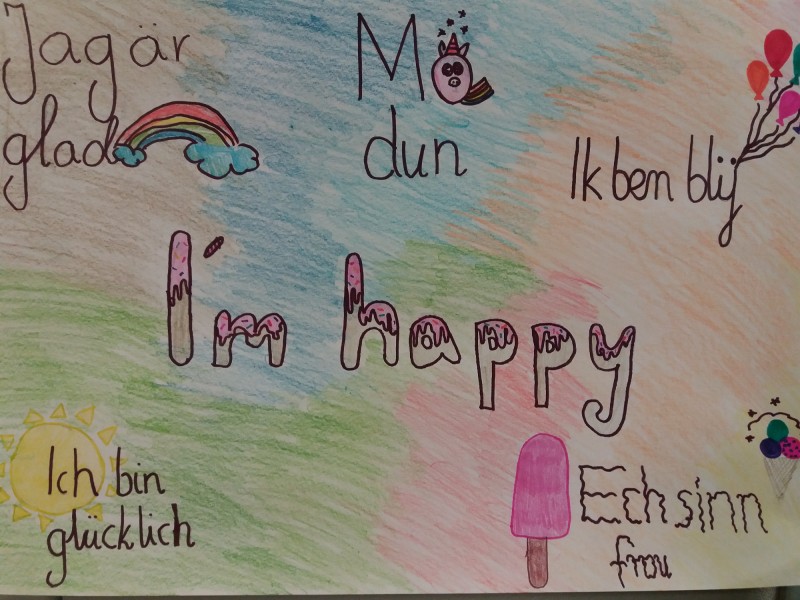 Jag är
glad
Mo
dun
Ik ben blij
I'm happy
Ich bin
glücklich
Ech sinn
frou